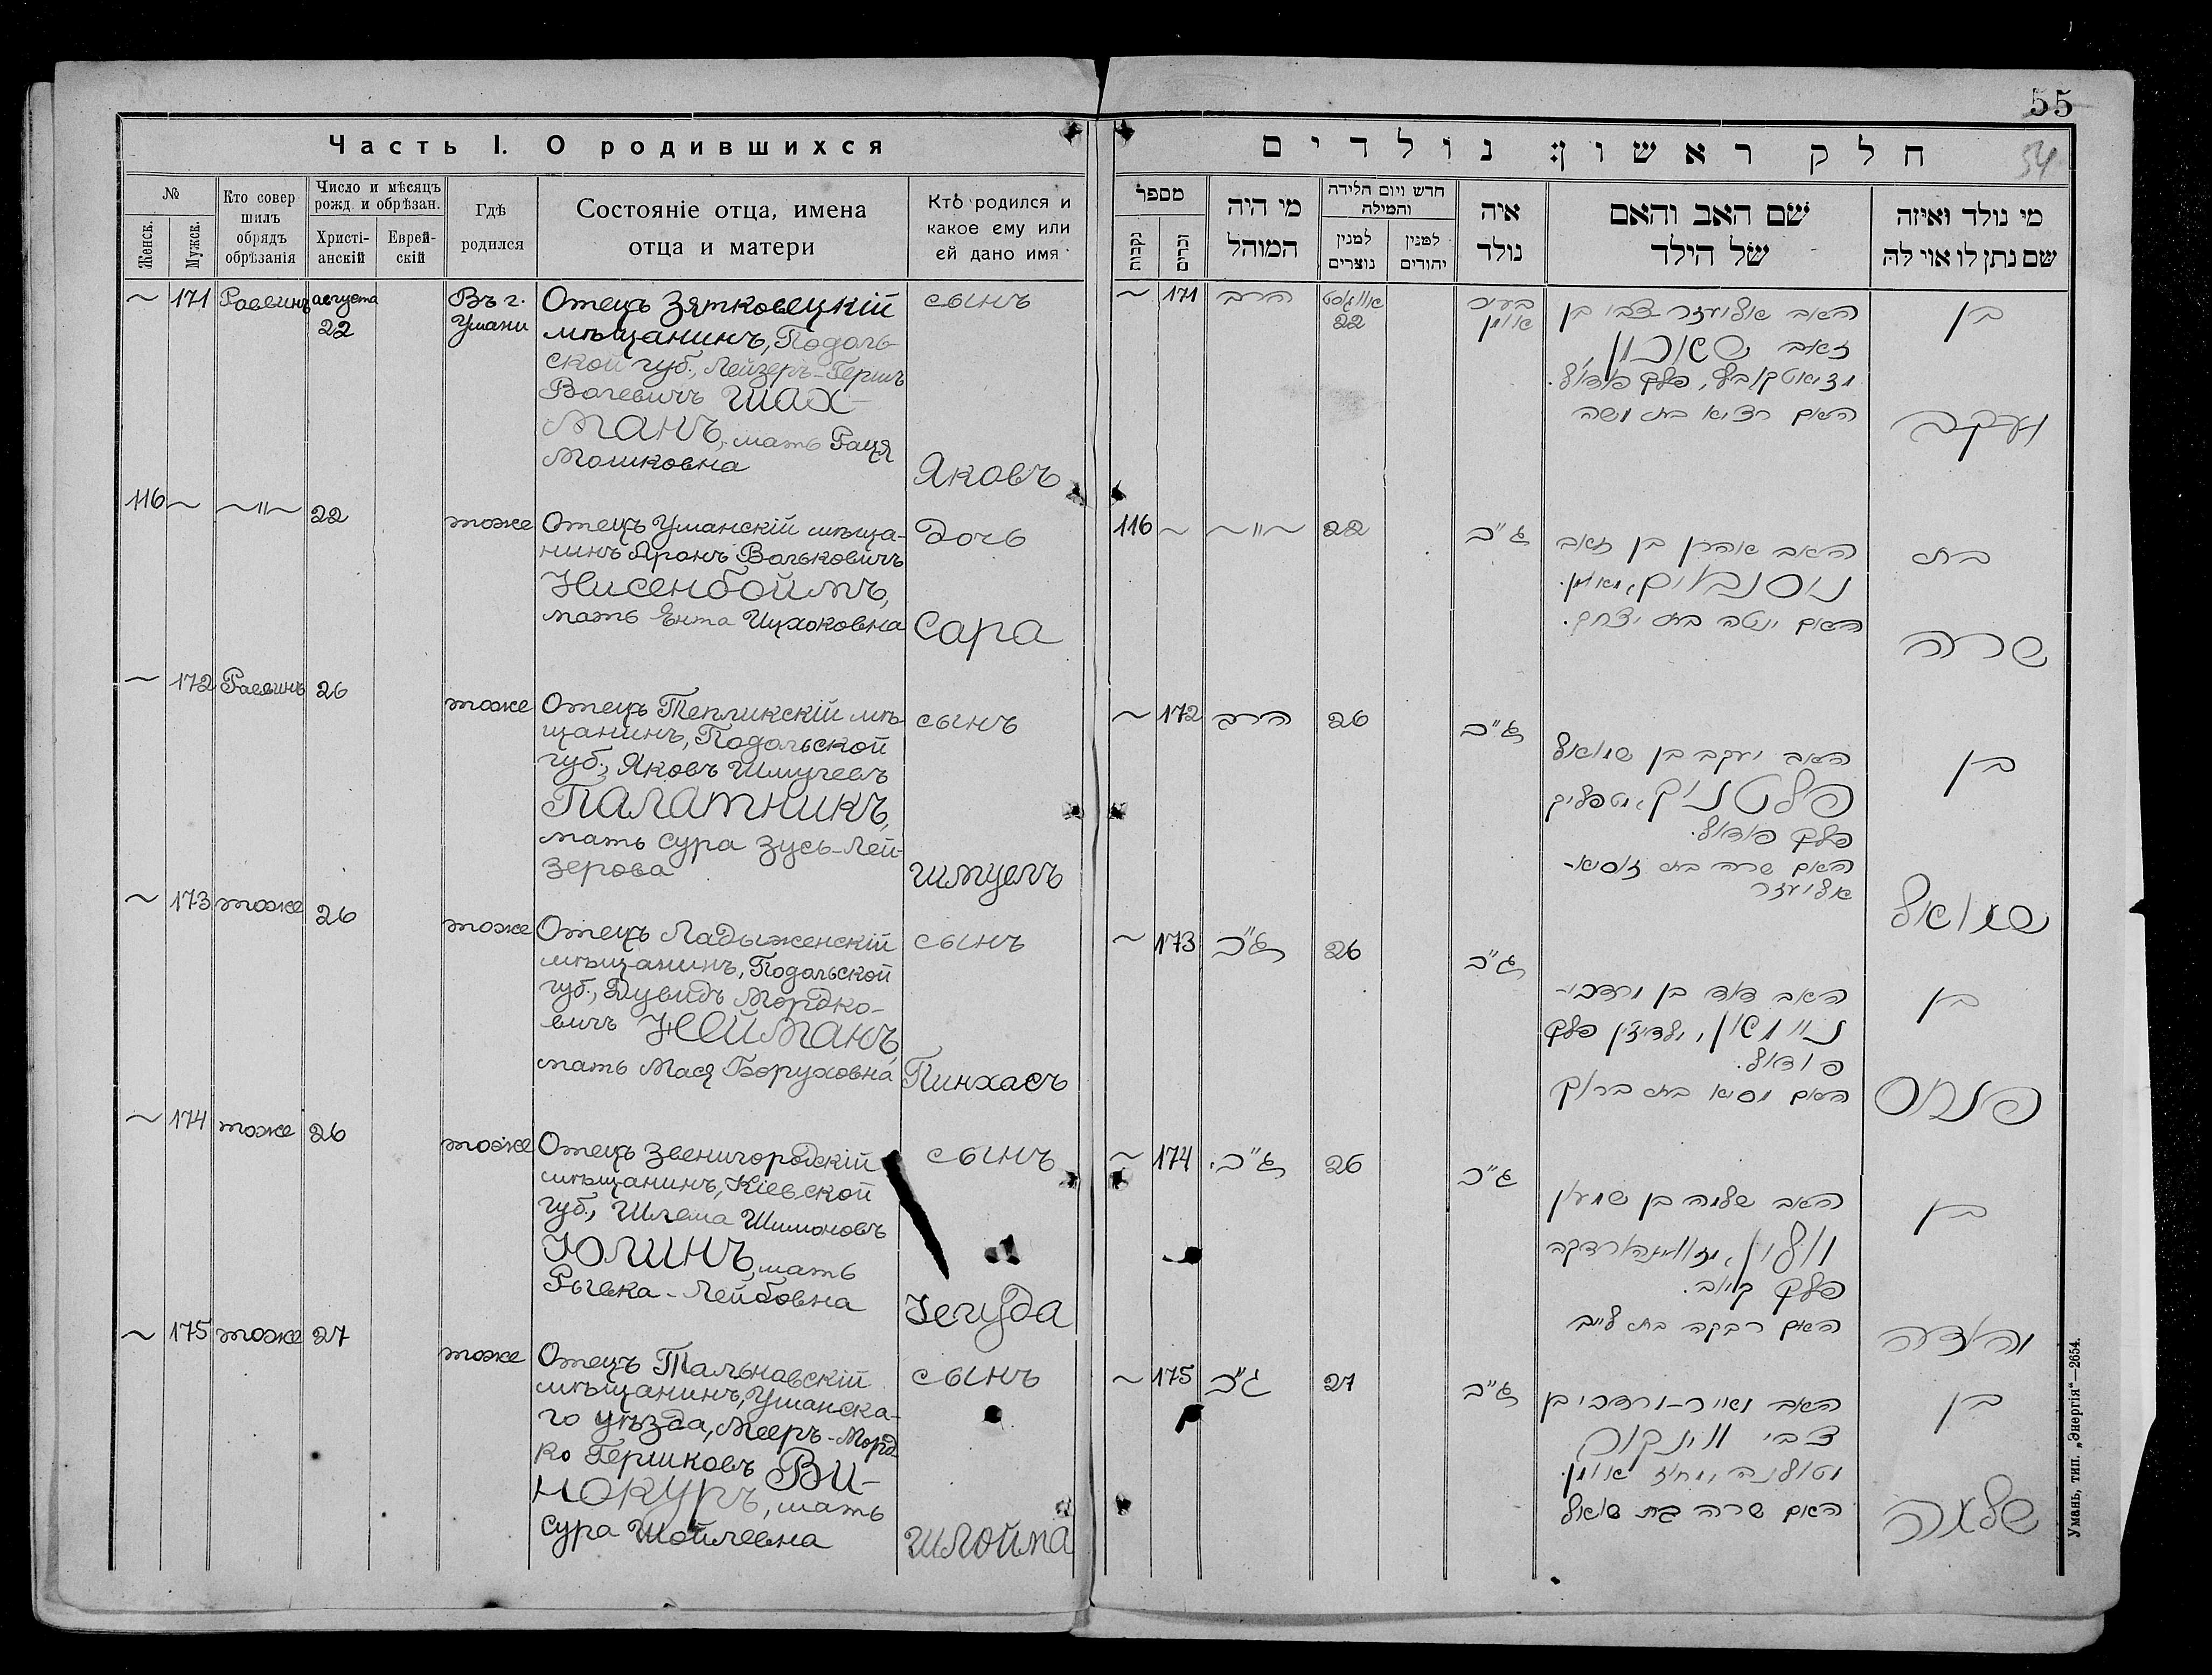 55
54
Часть I. О родившихся
№
Женск.
Мужск.
Кто совер
шилъ
обрядъ
обрѣзанія
Число и мѣсяцъ
рожд. и обрѣзан.
Христі-
анскій
Еврей-
скій
Гдѣ
родился
Состояніе отца, имена
отца и матери
Кто родился и
какое ему или
ей дано имя
~ 171 Раввинъ августа 22
Въ г.
Умани
Отецъ Зятковецкій
мѣщанинъ, Подоль-
ской губ., Лейзеръ-Гершъ
Волевичъ Шах-
манъ, мать Рация
Мошковна
сынъ
Яковъ
116 ~ ~"~ 22 тоже
Отецъ Уманскій мѣща-
нинъ Аронъ Вольковичъ
Нисенбоймъ,
мать Ента Ицхоковна
Дочь
Сара
~ 172 Раввинъ 26 тоже
Отецъ Тепликскій мѣ-
щанинъ, Подольской
губ., Яковъ Шмулевъ
Палатникъ,
мать Сура Зусь-Лей-
зерова
сынъ
Шмуелъ
~ 173 тоже 26 тоже
Отецъ Ладыженскій
мѣщанинъ, Подольской
губ., Дувидъ Мордко-
вичъ Нейманъ,
мать Мася Боруховна
сынъ
Пинхасъ
~ 174 тоже 26 тоже
Отецъ Звенигородскій
мѣщанинъ, Кіевской
губ., Шлема Шимоновъ
Юлинъ, мать
Рывка-Лейбовна
сынъ
Іегуда
~ 175 тоже 27 тоже
Отецъ Тальновскій
мѣщанинъ, Уманска-
го уѣзда, Мееръ-Морд
ко Гершковъ Ви-
нокуръ, мать
Сура Шойлевна
сынъ
Шлойма
חלק ראשון: נולדים
מספר
נקבות
זכרים
מי היה
המוהל
חדש ויום הלידה
והמילה
למנין
נוצרים
למנין
יהודים
איה
נולד
שם האב והאם
של הילד
מי נולד ואיזה
שם נתן לו אוי לה
~ 171 הרב אווגוסט 22
בעיר
אומן
האב אליעזר צבי בן
זאב שאכמן,
פלך פודול.
האם רציא בת משה
בן
יעקב
116 ~ ~"~ 22 ג"כ
האב אהרן בן זאב
ניסנבוים, מאומן.
האם ינטה בת יצחק.
בת
שרה
~ 172 הרב 26 ג"כ
האב יעקב בן שמואל
פלטניק, מטפליק
פלך פודול.
האם שרה בת זוסיא-
אליעזר
בן
שמואל
~ 173 ג"כ 26 ג"כ
האב דוד בן מרדכי-
ניימאן, מלדיזין פלך
פודול.
האם מסיא בת ברוך
בן
פנחס
~ 174 ג"כ. 26 ג"כ
האב שלמה בן שמעון
יולין,
פלך קיוב.
האם רבקה בת לייב
בן
~ 175 ג"כ 27 ג"כ
האב מאיר-מרדכי בן
צבי
מטולנה, מחוז אומן.
האם שרה בת שאול
בן
שלמה
Умань, тип. „Энергія“—2654.